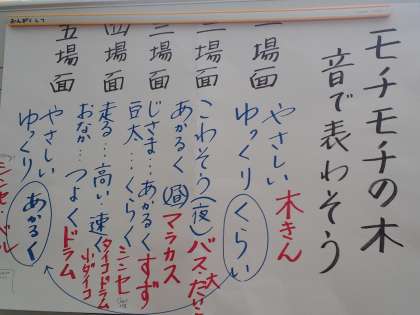 モチモチの木
音で表わそう
一場面
やさしい 木きん
ゆっくり くらい
二場面
こわそう(夜) バス・大だいこ
あかるく 昼 マラカス
三場面
じさま…あかるく すず
豆太…くらく シンセ
四場面
走る…高い 速く タイコドラム 小ダイコ
おなか…つよく ドラム
五場面
やさしい
ゆっくり あかるく
シンセ・ベル